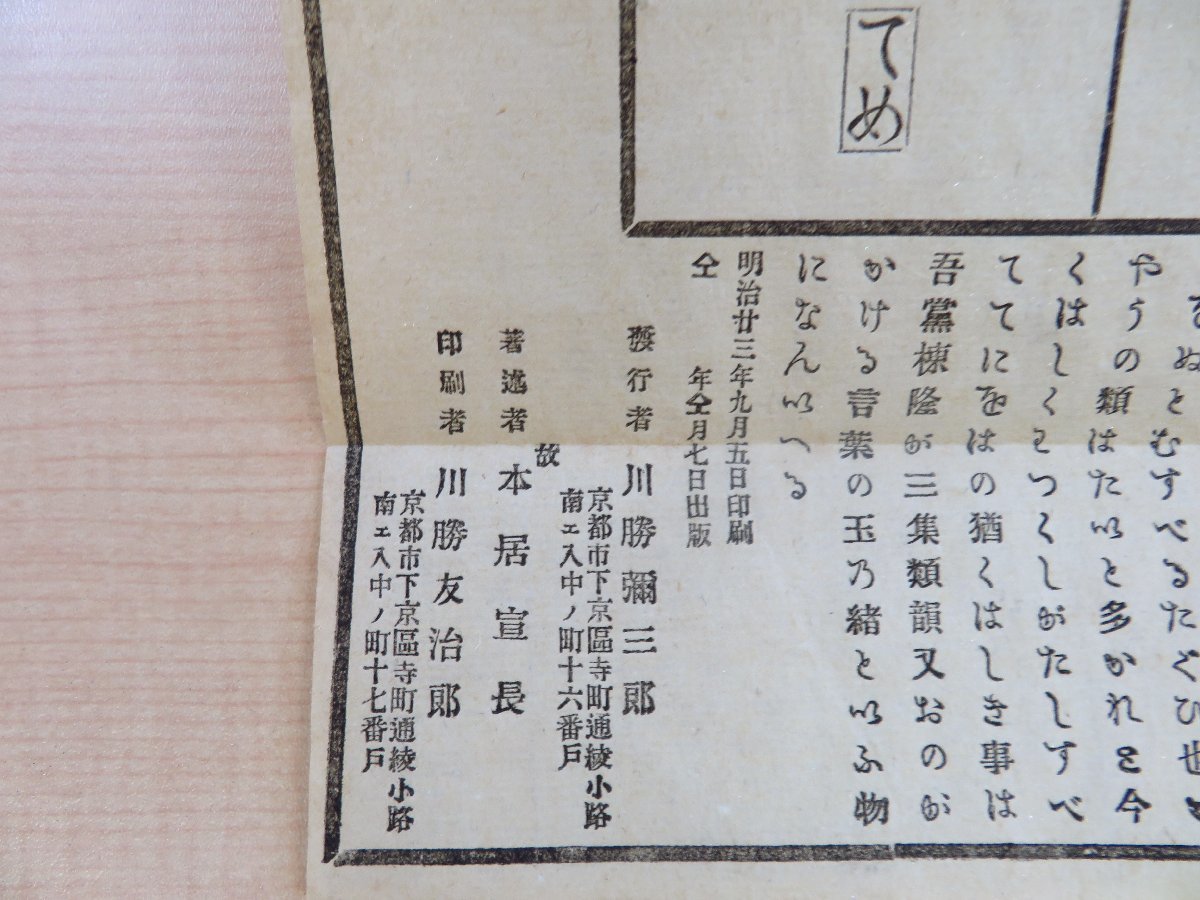 てめ
をぬとむすべるたぐひ也
やうの類はたいと多かれど今
くはしくとつくしがたしすべ
ててにをはの猶くはしき事は
吾黨棟隆が三集類韻又おのが
かける言葉の玉乃緒といふ物
になんいへる
明治廿三年九月五日印刷
仝 年仝月七日出版
發行者 川勝彌三郎
京都市下京區寺町通綾小路
南エ入中ノ町十六番戸
著述者 故 本居宣長
印刷者 川勝友治郎
京都市下京區寺町通綾小路
南エ入中ノ町十七番戸